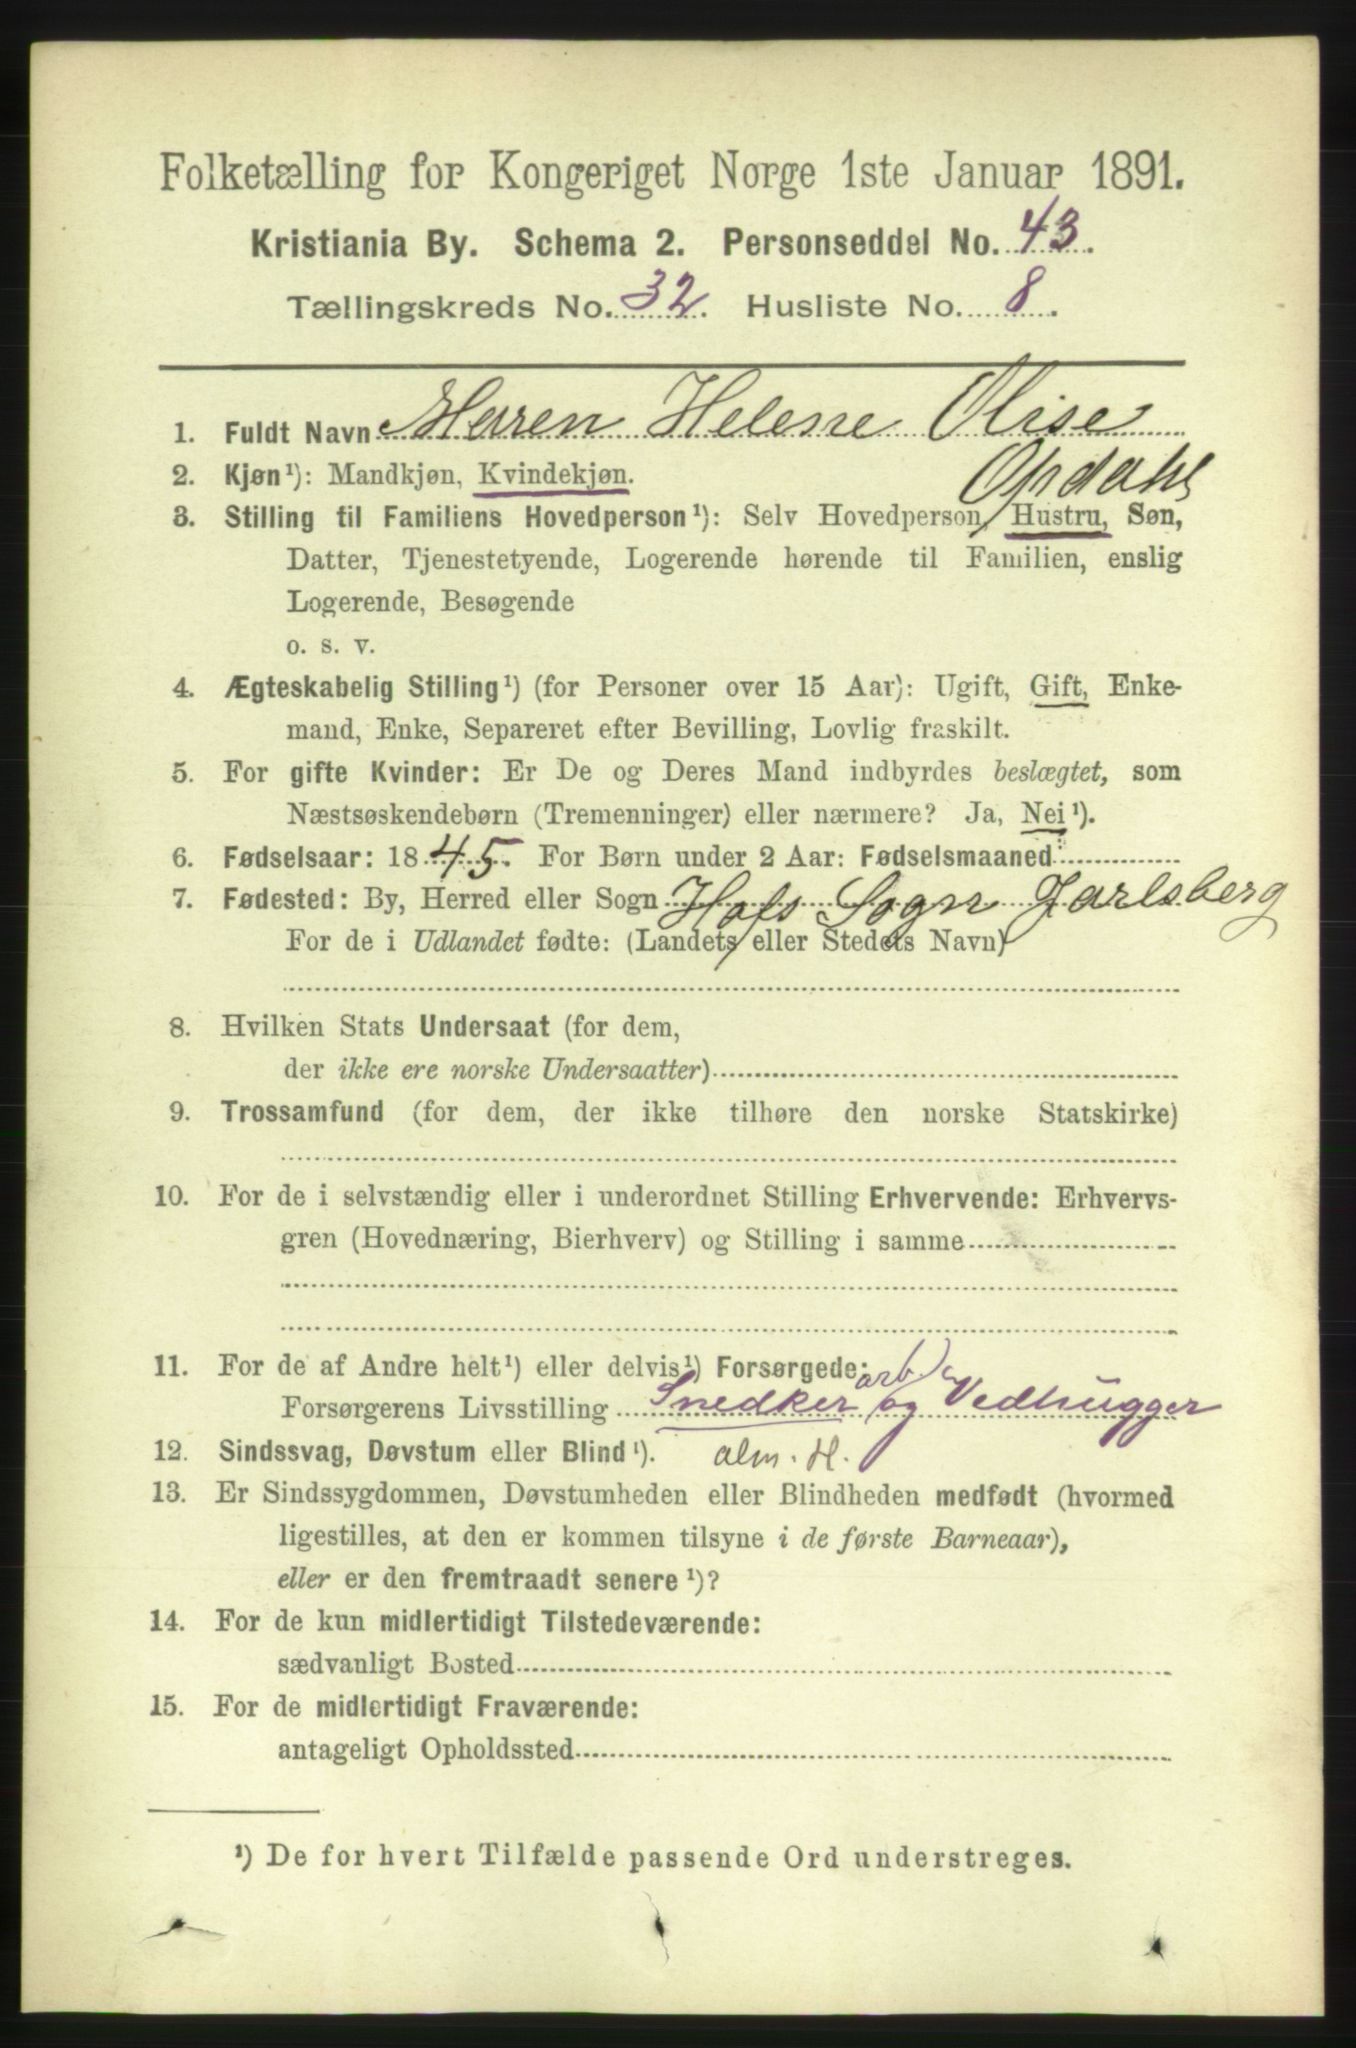 Folketælling for Kongeriget Norge 1ste Januar 1891.
Kristiania By. Schema 2. Personseddel No. 43.
Tællingskreds No. 32. Husliste No. 8.
1. Fuldt Navn Maren Helene Olise
Opdahl
2. Kjøn¹): Mandkjøn, Kvindekjøn.
3. Stilling til Familiens Hovedperson¹): Selv Hovedperson, Hustru, Søn,
Datter, Tjenestetyende, Logerende hørende til Familien, enslig
Logerende, Besøgende
o. s. v.
4. Ægteskabelig Stilling¹) (for Personer over 15 Aar): Ugift, Gift, Enke-
mand, Enke, Separeret efter Bevilling, Lovlig fraskilt.
5. For gifte Kvinder: Er De og Deres Mand indbyrdes beslægtet, som
Næstsøskendebørn (Tremenninger) eller nærmere? Ja, Nei¹).
6. Fødselsaar: 1845. For Børn under 2 Aar: Fødselsmaaned
7. Fødested: By, Herred eller Sogn Hofs Sogn Jarlsberg
For de i Udlandet fødte: (Landets eller Stedets Navn)
8. Hvilken Stats Undersaat (for dem,
der ikke ere norske Undersaatter)
9. Trossamfund (for dem, der ikke tilhøre den norske Statskirke)
10. For de i selvstændig eller i underordnet Stilling Erhvervende: Erhvervs-
gren (Hovednæring, Bierhverv) og Stilling i samme
11. For de af Andre helt¹) eller delvis¹) Forsørgede:
Forsørgerens Livsstilling Snedker arb. og Vedhugger
12. Sindssvag, Døvstum eller Blind¹). alm. H.
13. Er Sindssygdommen, Døvstumheden eller Blindheden medfødt (hvormed
ligestilles, at den er kommen tilsyne i de første Barneaar),
eller er den fremtraadt senere¹)?
14. For de kun midlertidigt Tilstedeværende:
sædvanligt Bosted
15. For de midlertidigt Fraværende:
antageligt Opholdssted
¹) De for hvert Tilfælde passende Ord understreges.